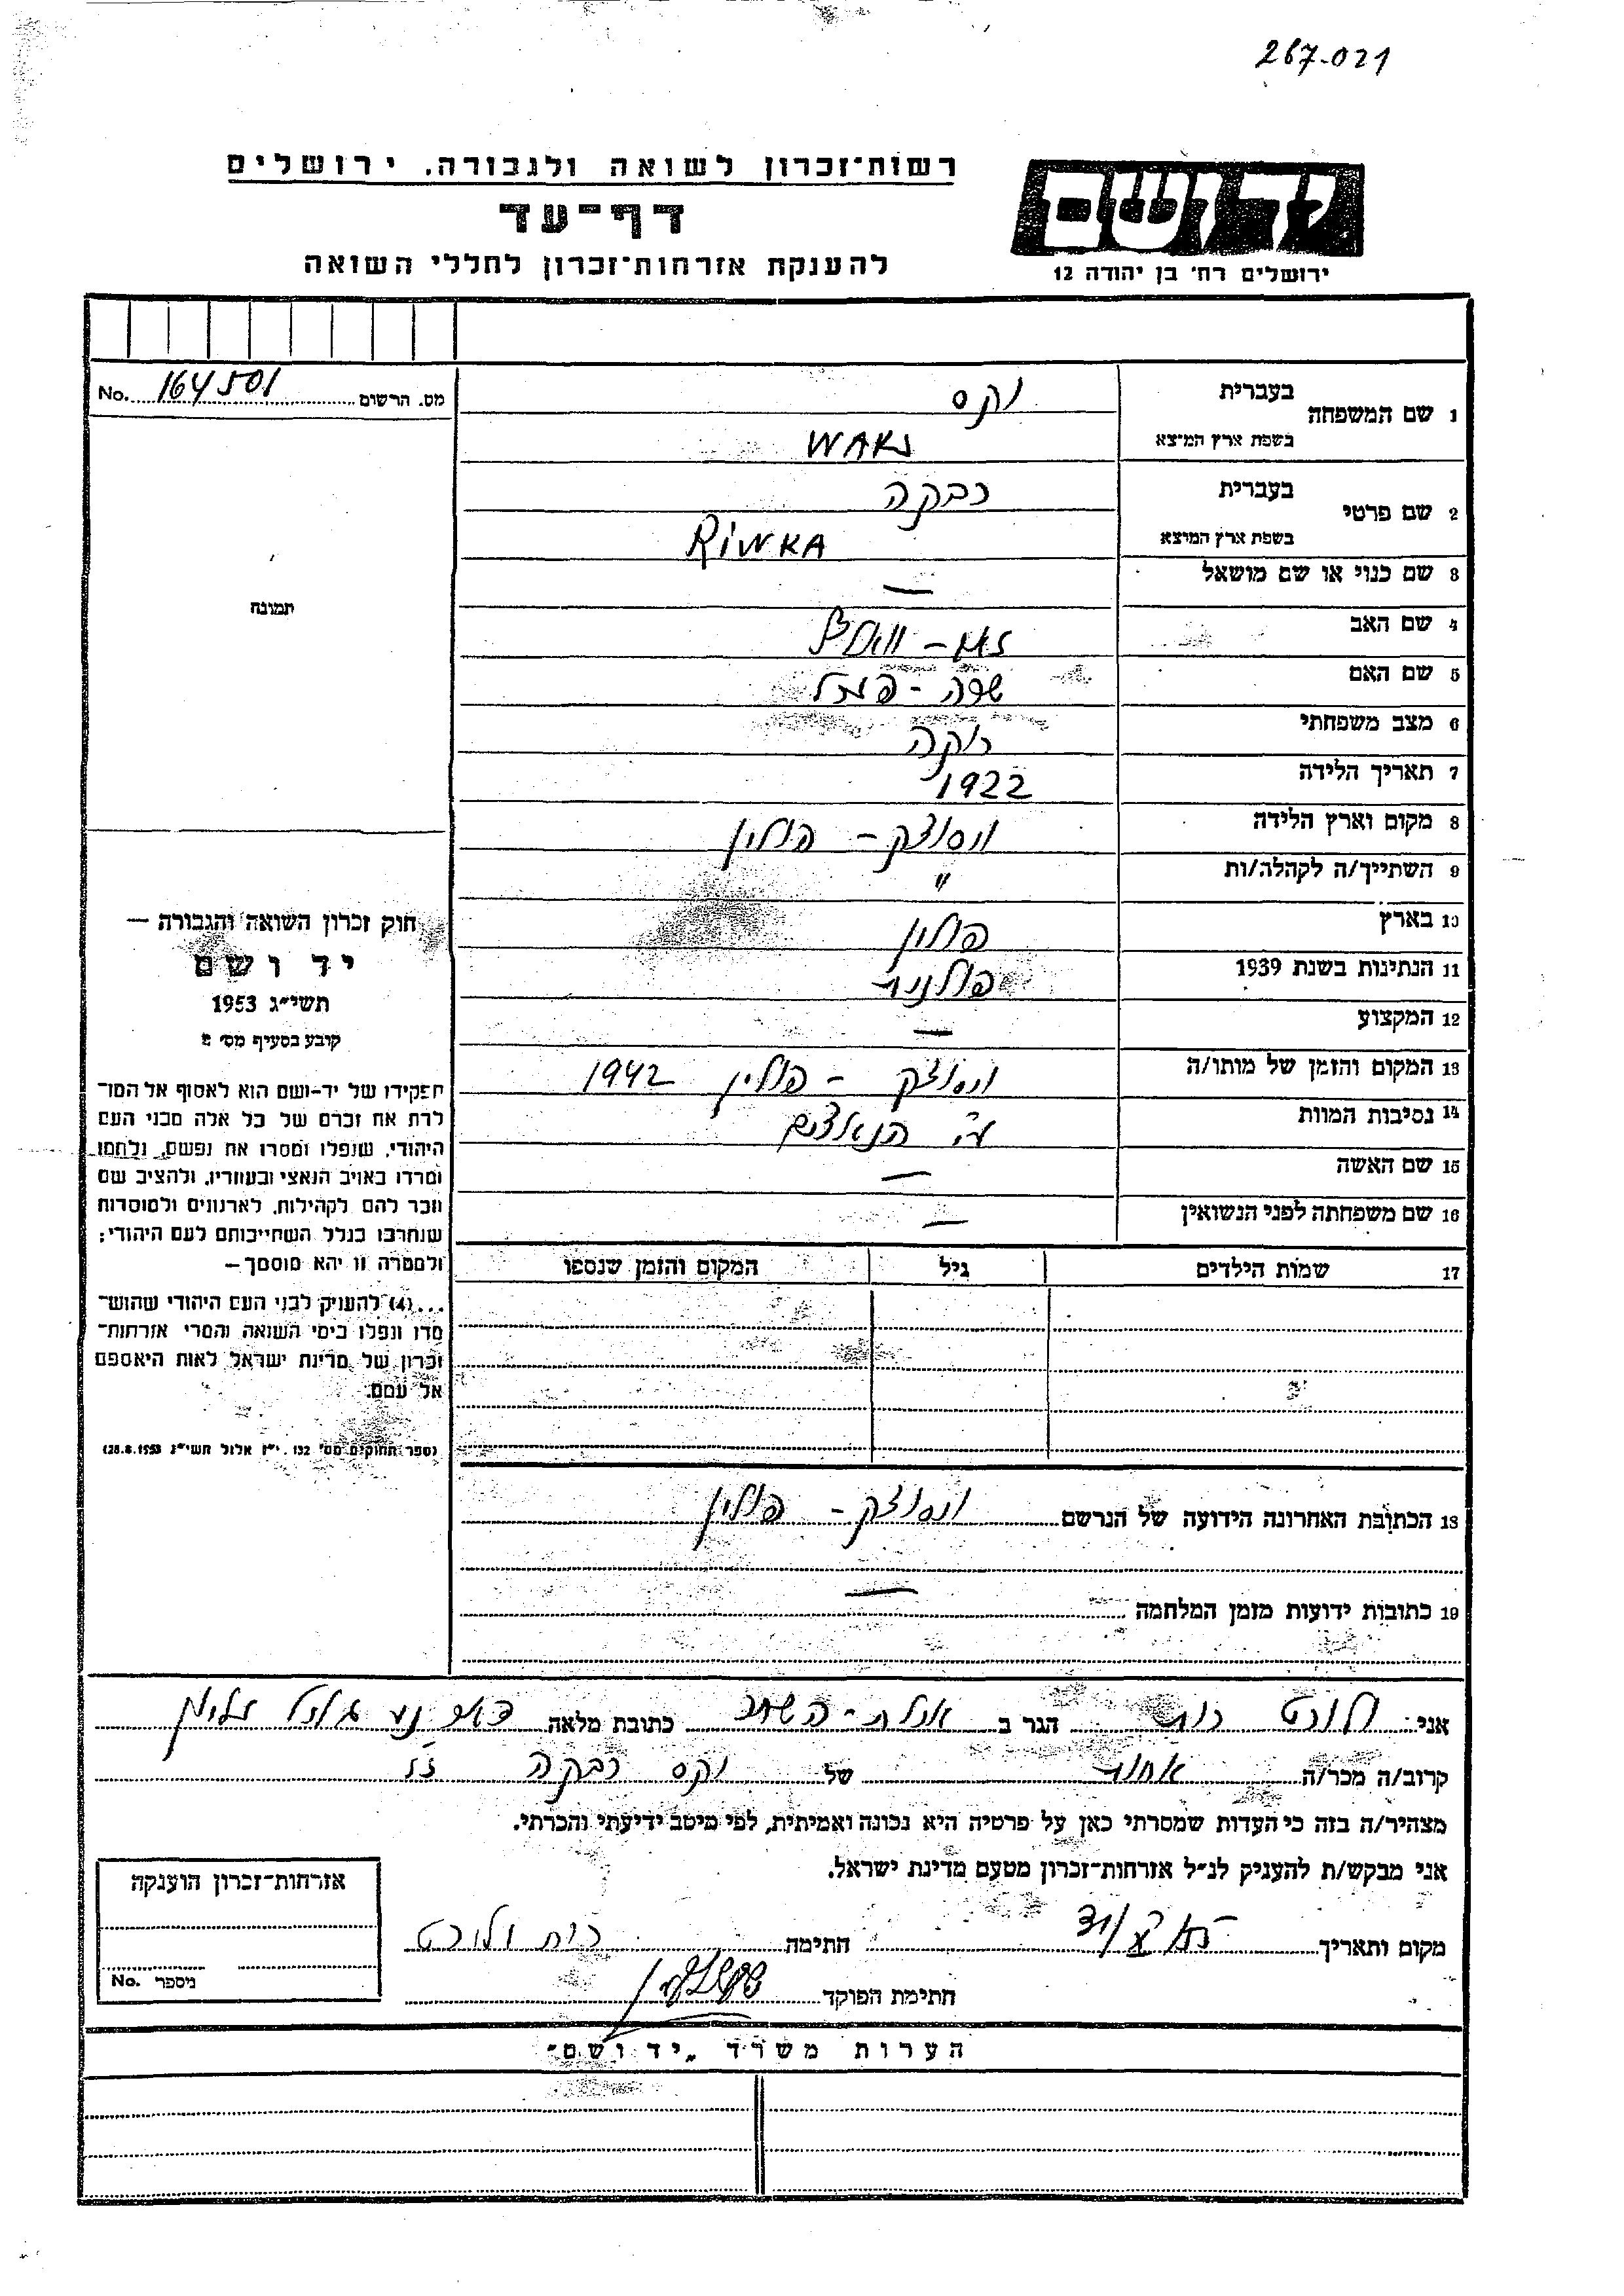 267-021
רשות־זכרון לשואה ולגבורה. ירושלים
דף־עד
להענקת אזרחות־זכרון לחללי השואה
יד ושם
ירושלים רח׳ בן יהודה 12
מס. הרשום 164501 No.
תמונה
בעברית וקס
1 שם המשפחה
בשפת ארץ המוצא WAKS
בעברית רבקה
2 שם פרטי
בשפת ארץ המוצא RIWKA
3 שם כנוי או שם מושאל —
4 שם האב
5 שם האם שרה -
6 מצב משפחתי רוקה
7 תאריך הלידה 1922
8 מקום וארץ הלידה וסוצק - פולין
9 השתייך/ה לקהלה/ות "
10 בארץ פולין
11 הנתינות בשנת 1939 פולנית
12 המקצוע —
13 המקום והזמן של מותו/ה וסוצק - פולין 1942
14 נסיבות המוות ע"י הנאצים
15 שם האשה —
16 שם משפחתה לפני הנשואין —
17 שמות הילדים גיל המקום והזמן שנספו
חוק זכרון השואה והגבורה —
יד ושם
תשי״ג 1953
קובע בסעיף מס׳ 2
תפקידו של יד-ושם הוא לאסוף אל המו־
לדת את זכרם של כל אלה מבני העם
היהודי, שנפלו ומסרו את נפשם, נלחמו
ומרדו באויב הנאצי ובעוזריו, ולהציב שם
וזכר להם לקהילות, לארגונים ולמוסדות
שנחרבו בגלל השתייכותם לעם היהודי;
ולמטרה זו יהא מוסמך —
...(4) להעניק לבני העם היהודי שהוש־
מדו ונפלו בימי השואה והמרי אזרחות־
זכרון של מדינת ישראל לאות היאספם
אל עמם.
(ספר החוקים מס׳ 132. י״ז אלול תשי״ג 28.8.1953)
18 הכתובת האחרונה הידועה של הנרשם וסוצק - פולין
19 כתובות ידועות מזמן המלחמה —
אני ולורט רות הגר ב אילת-השחר כתובת מלאה דאר נע גליל עליון
קרוב/ה מכר/ה אחות של וקס רבקה ז"ל
מצהיר/ה בזה כי העדות שמסרתי כאן על פרטיה היא נכונה ואמיתית, לפי מיטב ידיעתי והכרתי.
אני מבקש/ת להעניק לנ״ל אזרחות־זכרון מטעם מדינת ישראל.
מקום ותאריך חתימה רות ולורט
חתימת הפוקד
אזרחות־זכרון הוענקה
מיספר No.
הערות משרד „יד ושם״